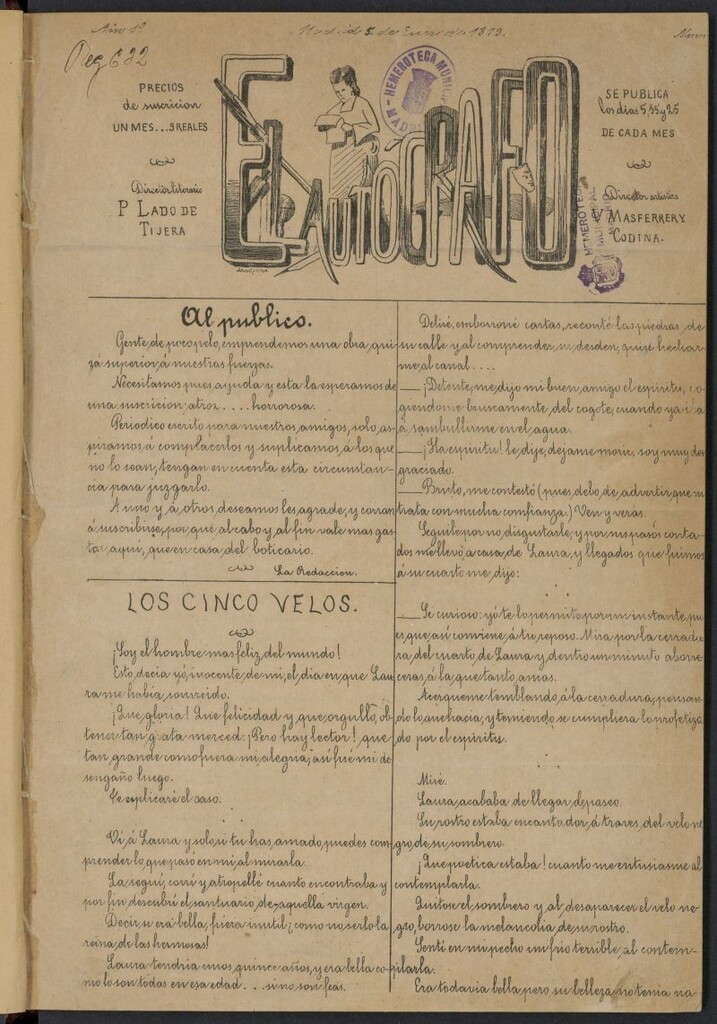 Año 1º
Madrid 5 de Enero de 1873.
Núm
Reg 632
PRECIOS
de suscricion
UN MES...3 REALES
Director literario
P LADO DE
TIJERA
EL AUTÓGRAFO
HEMEROTECA MUNICIPAL
MADRID
SE PUBLICA
los dias 5, 15 y 25
DE CADA MES
Director artistico
V MASFERRER Y
CODINA.
HEMEROTECA
MUNICIPAL
Al publico.
Gente, de poco pelo, emprendemos una obra, qui-
zá superior, á nuestras fuerzas.
Necesitamos pues, ayuda y esta la esperamos de
una suscricion, atroz.... horrorosa.
Periodico escrito para nuestros, amigos, solo, as-
piramos, á complacerlos y suplicamos, á los que
no lo sean, tengan en cuenta esta circunstan-
cia para juzgarlo.
A uno y á, otros, deseamos les, agrade, y corran
á suscribirse, por que, al cabo y, al fin vale mas gas-
tar, aqui, que en casa, del boticario.
La Redaccion.
LOS CINCO VELOS.
¡Soy el hombre mas feliz, del mundo!
Esto, decia yó, inocente, de mi, el, dia en, que Lau-
ra me habia, sonreido.
¡Que, gloria! Que felicidad y que, orgullo, ob-
tener tan, grata merced: ¡Pero hay lector! que
tan, grande como fuera mi, alegria, asi fue mi de-
sengaño luego.
Te esplicaré el caso.
Ví, á Laura y solo, si tu has, amado, puedes com-
prender lo, que pasó en mi, al mirarla.
La segui, corri y atropellé cuanto encontraba y
por fin, descubrí el santuario, de, aquella virgen.
Decir, si era bella, fuera inutil; ¡como no serlo la
reina, de las hermosas!
Laura tendria unos, quince años, y era bella co-
mo lo son todas en esa edad... sino, son feas.
Deliré, emborroné cartas, reconté las piedras, de
su calle y al comprender su, desden, quise hechar-
me, al canal....
— ¡Detente, me, dijo mi buen, amigo el espiritu, co-
giendome bruscamente, del cogote, cuando ya iba
á sambullirme en el, agua.
— ¡Ha espiritu! le, dije, dejame morir, soy muy des-
graciado.
— Bruto, me contestó (pues, debo, de, advertir, que me
trata con mucha confianza.) Ven y verás.
Seguile por no, disgustarle, y por sus pasos conta-
dos me llevó, a casa, de Laura, y llegados que fuimos
á su cuarto me, dijo:
— Se curioso: yó te lo permito por un instante, pu-
es, que, asi conviene, á tu, reposo. Mira por la cerradu-
ra, del cuarto, de Laura, y dentro un minuto aborre-
ceras, á la, que tanto, amas.
Acerqueme temblando, á la cerradura, pensan-
do lo, que hacia, y temiendo se cumpliera lo profetiza-
do por el espiritu.
Miré.
Laura, acababa de llegar, de paseo.
Su, rostro estaba encantador, á traves, del velo ne-
gro, de su, sombrero.
¡Que poetica estaba! cuanto me entusiasme al
contemplarla.
Quitose el, sombrero y, al, desaparecer el velo ne-
gro, borrose la melancolia, de su rostro.
Senti en mi pecho un frio terrible, al contem-
plarla.
Era todavia bella, pero su belleza, no tenia na-